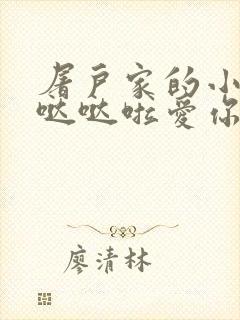 屠户家的小
哒哒啦爱你
廖清林